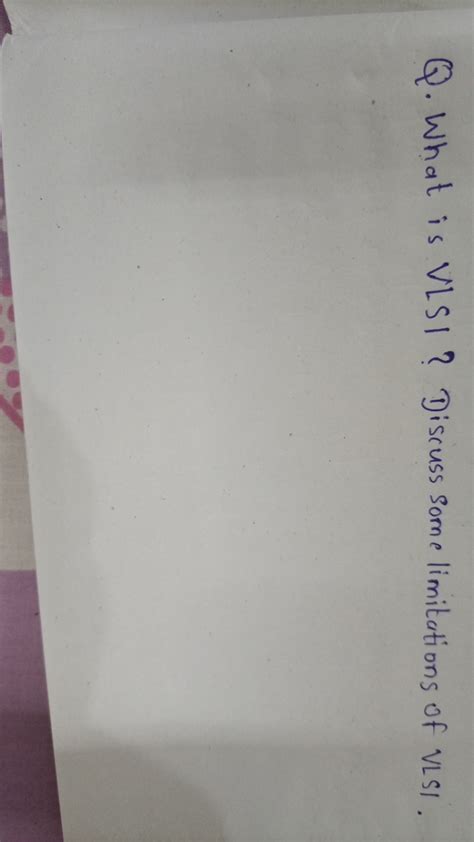 Q. What is VLSI? Discuss some limitations of VLSI.